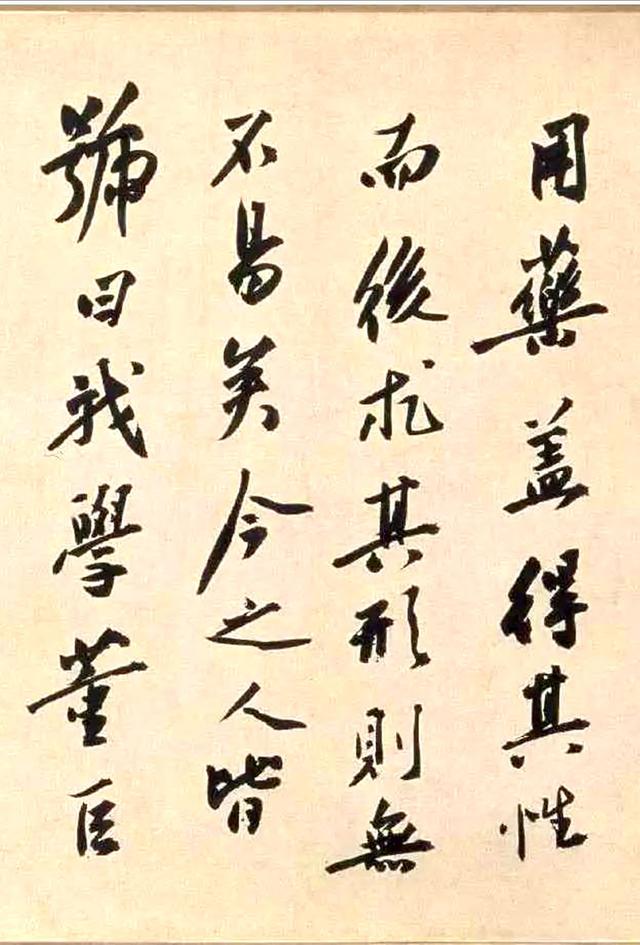 用藥盖得其性
而後求其形則無
不易矣今之人皆
號曰我學董巨